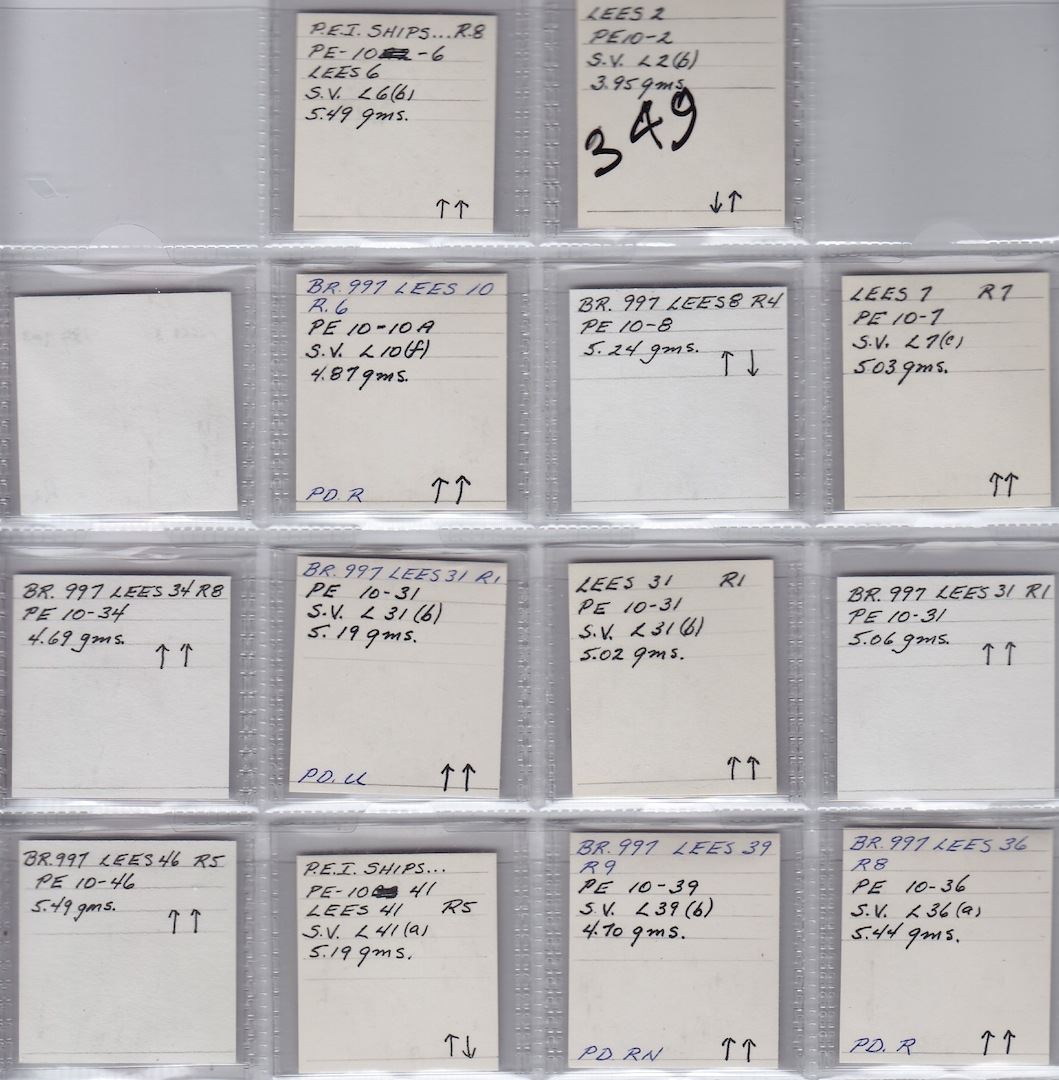 P.E.I. SHIPS... R.8
PE-10 -6
LEES 6
S.V. L6(b)
5.49 gms.
↑↑
LEES 2
PE10-2
S.V. L2(b)
3.95 gms
349
↓↑
BR. 997 LEES 10
R.6
PE 10-10A
S.V. L10(f)
4.87 gms.
PD. R ↑↑
BR. 997 LEES8 R4
PE 10-8
5.24 gms.
↑↓
LEES 7 R7
PE 10-7
S.V. L7(c)
5.03 gms.
↑↑
BR. 997 LEES 34 R8
PE 10-34
4.69 gms.
↑↑
BR. 997 LEES 31 R1
PE 10-31
S.V. L31(b)
5.19 gms.
PD. U ↑↑
LEES 31 R1
PE 10-31
S.V. L31(b)
5.02 gms.
↑↑
BR. 997 LEES 31 R1
PE 10-31
5.06 gms.
↑↑
BR. 997 LEES 46 R5
PE 10-46
5.49 gms.
↑↑
P.E.I. SHIPS...
PE-10 41
LEES 41 R5
S.V. L41(a)
5.19 gms.
↑↓
BR. 997 LEES 39
R9
PE 10-39
S.V. L39(b)
4.70 gms.
PD. RN ↑↑
BR. 997 LEES 36
R8
PE 10-36
S.V. L36(a)
5.44 gms.
PD. R ↑↑